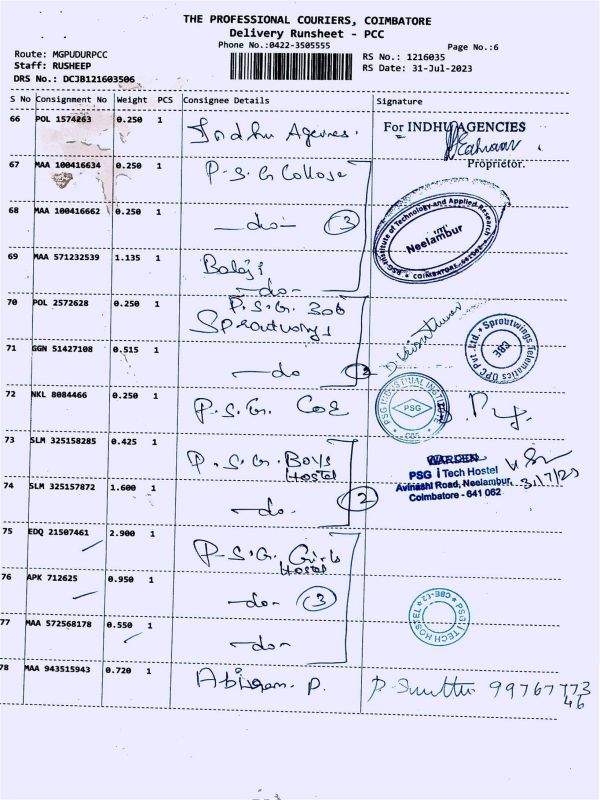 THE PROFESSIONAL COURIERS, COIMBATORE
Delivery Runsheet - PCC
Phone No.:0422-3505555
Page No.:6
Route: MGPUDURPCC
RS No.: 1216035
Staff: RUSHEEP
RS Date: 31-Jul-2023
DRS No.: DCJB121603506
S No Consignment No Weight PCS Consignee Details Signature
66 POL 1574263 0.250 1 Indhu Agencies.
For INDHU AGENCIES
Proprietor.
67 MAA 100416634 0.250 1 P.S.G College
68 MAA 100416662 0.250 1 -do- 3
PSG-Institute of Technology and Applied Research
Neelambur
COIMBATORE
69 MAA 571232539 1.135 1 Balaji
-do-
70 POL 2572628 0.250 1 P.S.G 306
Sproutwings
Sproutwings Telematics OPC Pvt. Ltd.
383
71 GGN 51427108 0.515 1 -do
72 NKL 8084466 0.250 1 P.S.G. CoE
PSG INDUSTRIAL INSTITUTE
PSG
73 SLM 325158285 0.425 1 P.S.G. Boys
Hostel
WARDEN
PSG i Tech Hostel
Avinashi Road, Neelambur,
Coimbatore - 641 062
31/7/23
74 SLM 325157872 1.600 1 -do- 2
75 EDQ 21507461 2.900 1 P-S.G. Girls
Hostel
76 APK 712625 0.950 1 -do- 3
PSG i TECH HOSTEL CBE-62
77 MAA 572568178 0.550 1 -do-
78 MAA 943515943 0.720 1 P. 99767773
46